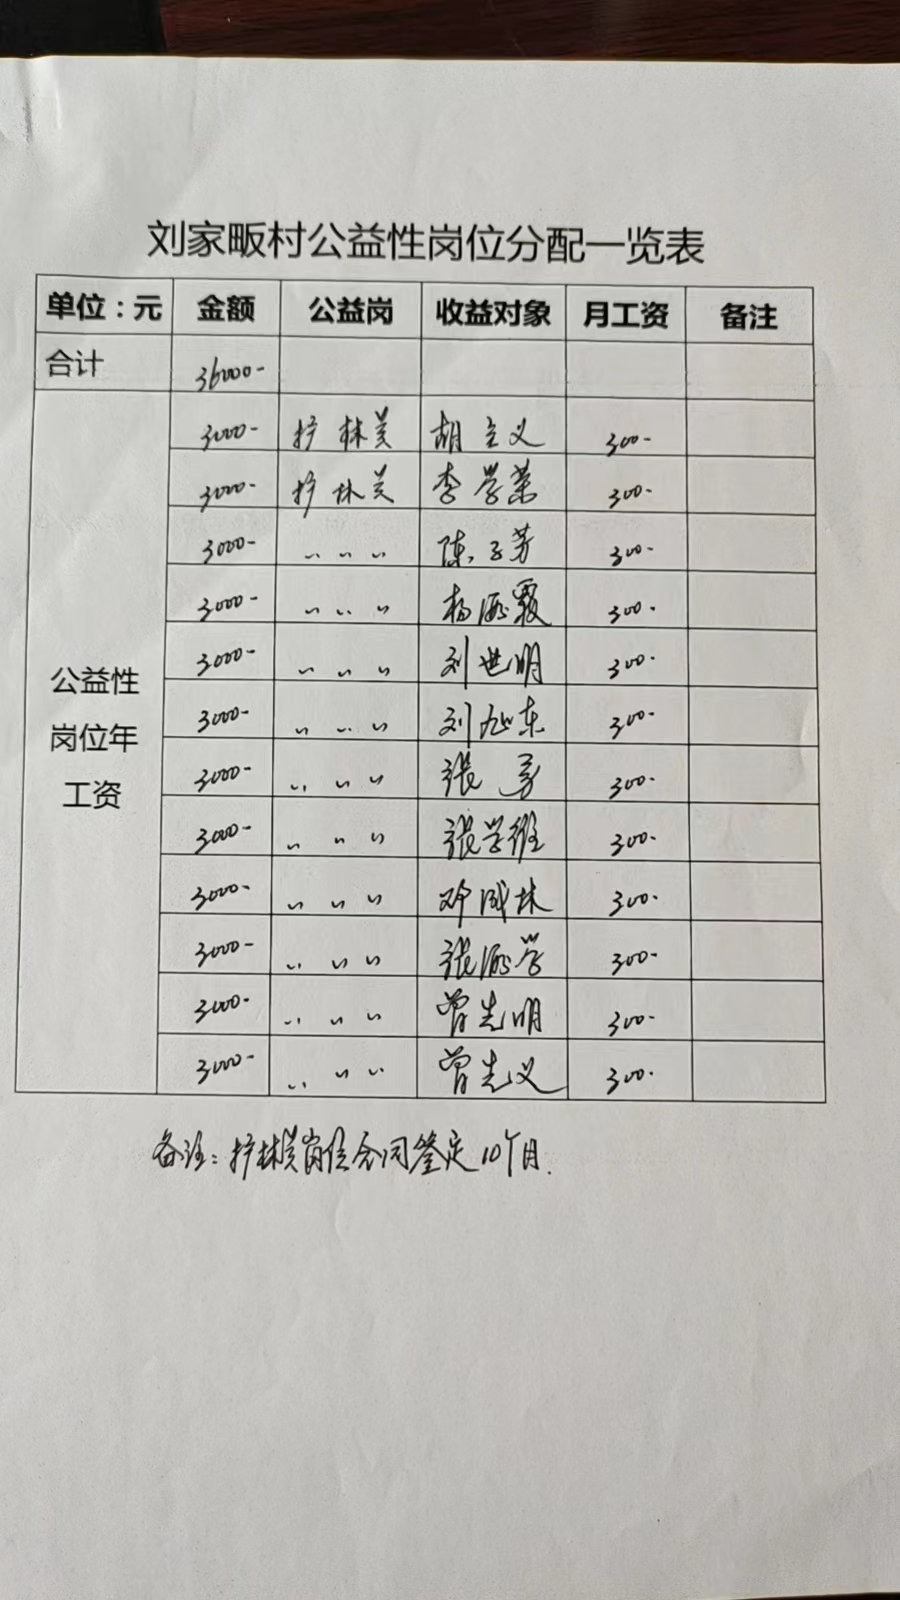 刘家畈村公益性岗位分配一览表
单位：元 金额 公益岗 收益对象 月工资 备注
合计 36000-
公益性岗位年工资
3000- 护林员 胡主义 300-
3000- 护林员 李学荣 300-
3000- 〃 〃 〃 陈子芳 300-
3000- 〃 〃 〃 杨 霞 300-
3000- 〃 〃 〃 刘世明 300-
3000- 〃 〃 〃 刘旭东 300-
3000- 〃 〃 〃 张 300-
3000- 〃 〃 〃 张学 300-
3000- 〃 〃 〃 邓成林 300-
3000- 〃 〃 〃 张 学 300-
3000- 〃 〃 〃 曾先明 300-
3000- 〃 〃 〃 曾先义 300-
备注：护林员岗位合同签定10个月.